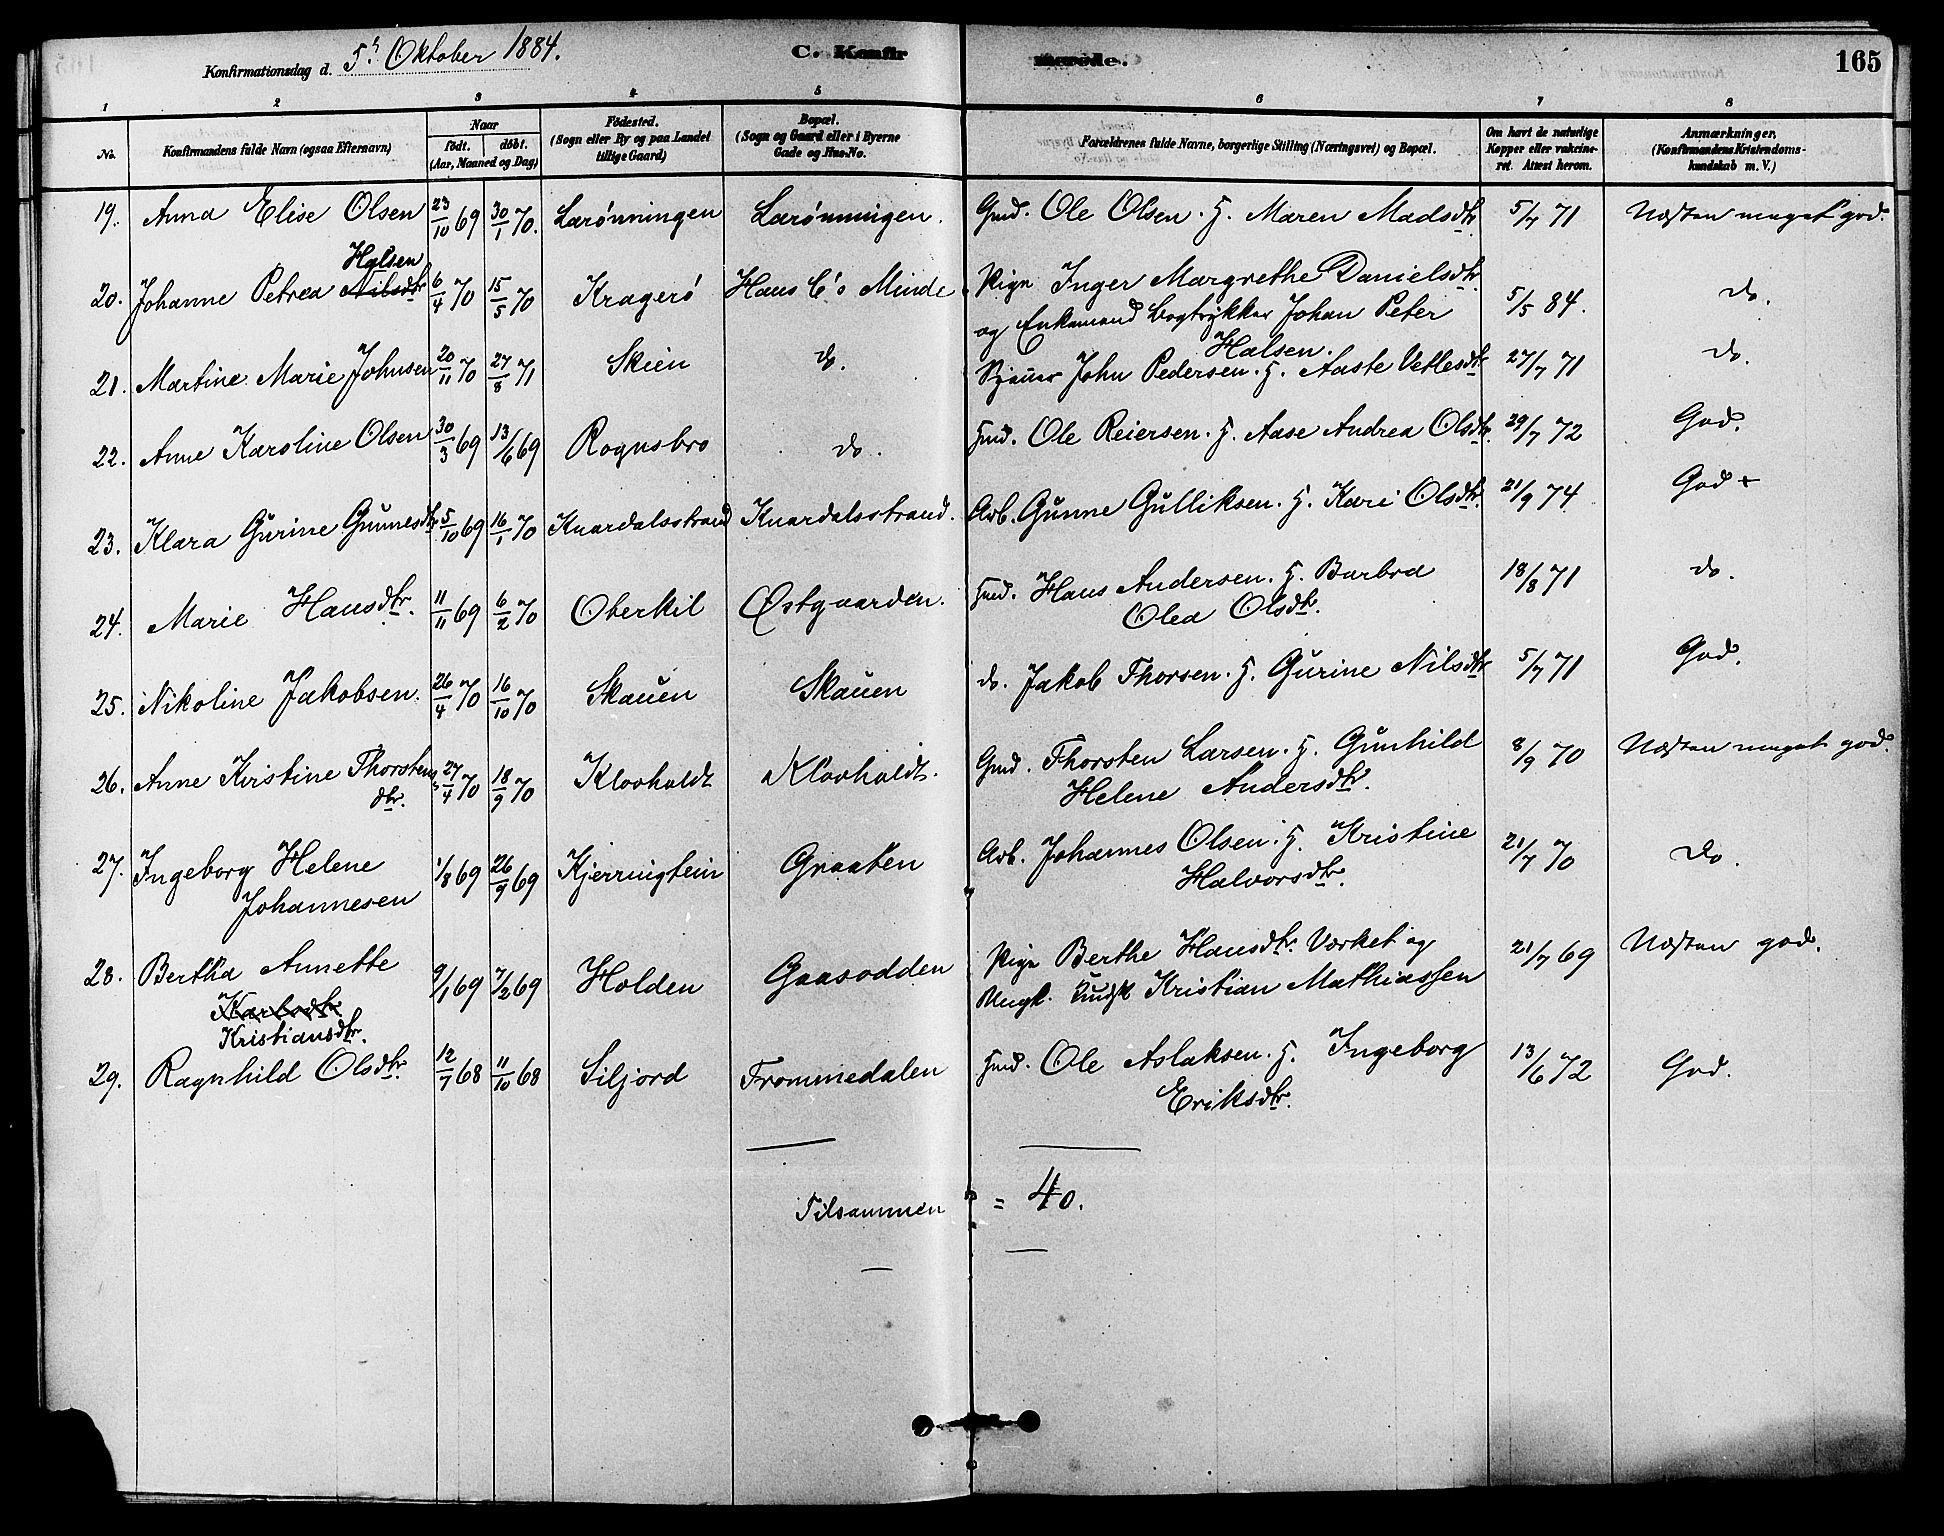 Konfirmationsdag d. 5te Oktober 1884. C. Konfirmerede. 165
1 2 3 4 5 6 7 8
No. Konfirmandens fulde Navn (ogsaa Efternavn) Naar født. døbt. (Aar, Maaned og Dag) Fødested. (Sogn eller By og paa Landet tillige Gaard) Bopæl. (Sogn og Gaard eller i Byerne Gade og Hus-No. Forældrenes fulde Navne, borgerlige Stilling (Næringsvei) og Bopæl. Om havt de naturlige Kopper eller vakcineret. Attest herom. Anmærkninger. (Konfirmandens Kristendomskundskab m. V.)
19. Anna Elise Olsen 23/10 69 30/1 70. Lærønningen Lærønningen. Gmd. Ole Olsen. H. Maren Madsdtr. 5/7 71 Næsten meget god.
Halsen
20. Johanne Petrea Nilsdtr 6/4 70 15/5 70 Kragerø Hans C's Minde Pige Inger Margrethe Danielsdtr. 5/5 84. do.
og Enkemand Bogtrykker Johan Peter
Halsen.
21. Martine Marie Johnsen 20/11 70 27/8 71 Skien do. Sjauer John Pedersen. H. Aaste Vetlesdtr 27/7 71 do.
22. Anne Karoline Olsen 30/3 69 13/6 69 Rognsbro do. Hmd. Ole Reiersen. H. Aase Andrea Olsdtr. 29/7 72 God.
23. Klara Gurine Gunnesdtr 5/10 69 16/1 70 Knardalsstrand Knardalsstrand. Arb. Gunne Gulliksen. H. Kari Olsdtr. 21/9 74 God +
24. Marie Hansdtr. 11/11 69 6/2 70 Oterkil Østgaarden. Hmd. Hans Andersen. H. Barbra 18/8 71 do.
Olea Olsdtr.
25. Nikoline Jakobsen. 26/4 70 16/10 70 Skauen Skauen do. Jakob Thorsen. H. Gurine Nilsdtr 5/7 71 God.
26. Anne Kristine Thorstens 27/4 70 18/9 70 Klovholdt Klovholdt. Gmd. Thorsten Larsen. H. Gunhild 8/9 70 Næsten meget god.
dtr. Helene Andersdtr.
27. Ingeborg Helene 1/8 69 26/9 69 Kjerringtein Graaten Arb. Johannes Olsen. H. Kristine 21/7 70 do.
Johannesen Halvorsdtr.
28. Bertha Annette 9/1 69 7/2 69 Holden Gaasodden Pige Berthe Hansdtr. Værket og 21/7 69 Næsten god.
Ungk. Kristian Mathiassen
Kristiansdtr.
29. Ragnhild Olsdtr. 12/7 68 11/10 68 Siljord Frommedalen Hmd. Ole Aslaksen. H. Ingeborg 13/6 72 God.
Eriksdtr.
Tilsammen = 40.